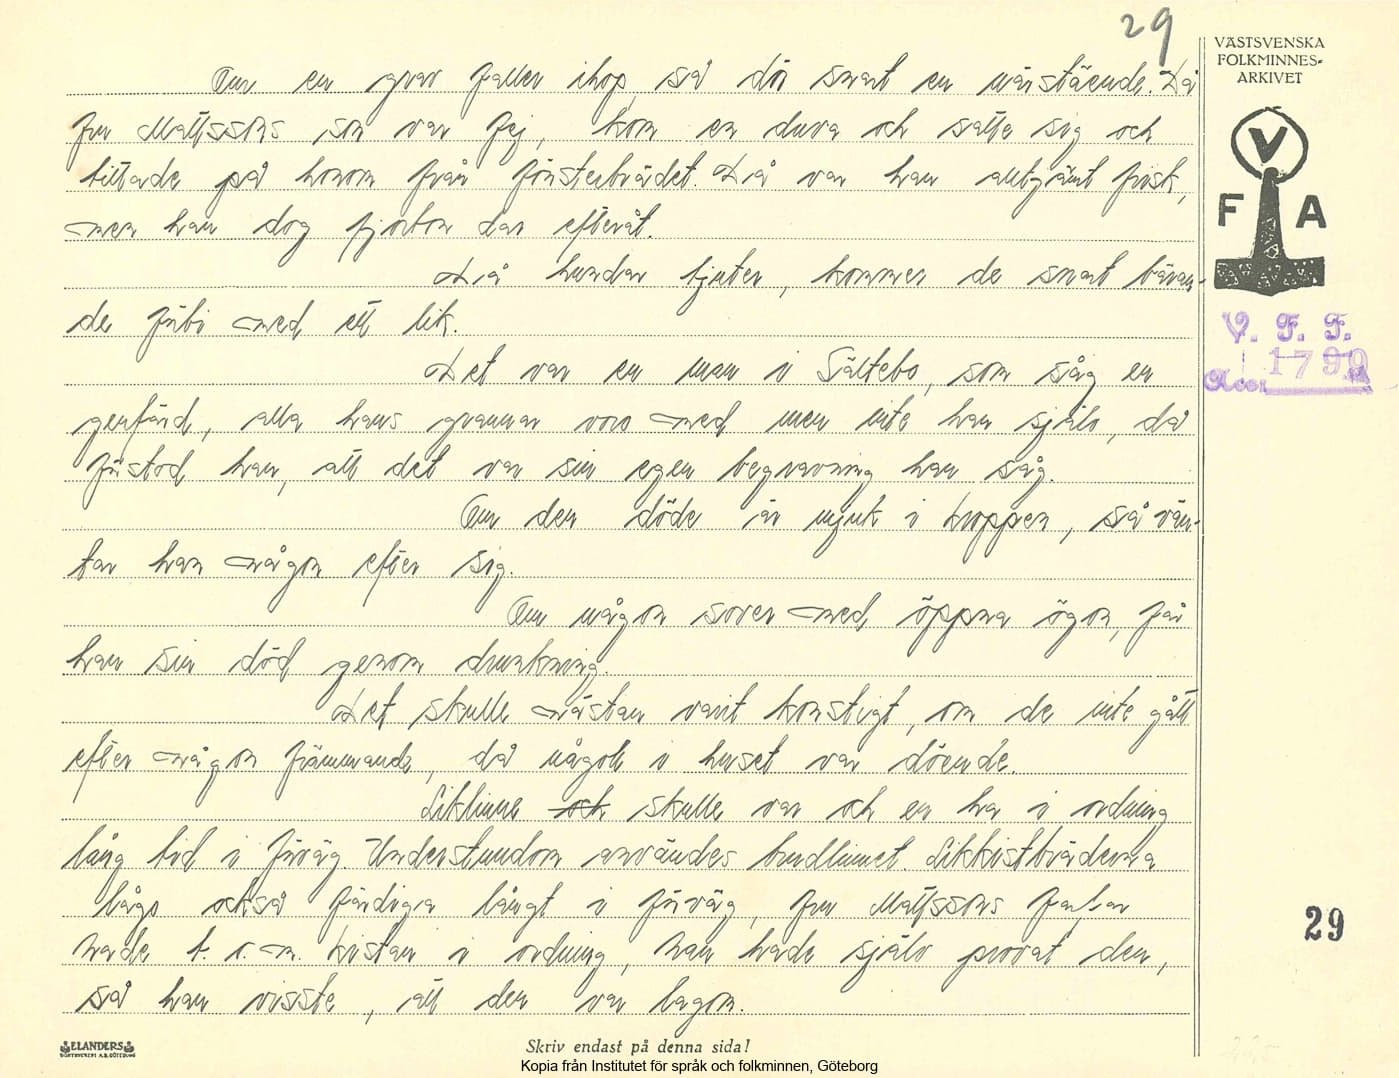 29
VÄSTSVENSKA
FOLKMINNES-
ARKIVET
V
F A
V. F. F.
Acc. 1799
Om en grav faller ihop, så dör snart en närstående. Då
fru Mattssons son var fej, kom en duva och satte sig och
tittade på honom från fönsterbrädet. Då var han alltjämt frisk,
men han dog fjorton dar efteråt.
Då hundar tjuter, kommer de snart bäran-
de förbi med ett lik.
Det var en man i Sältebo, som såg en
genfärd, alla hans grannar voro med men inte han själv, då
förstod han, att det var sin egen begravning han såg.
Om den döde är mjuk i kroppen, så vän-
tar han någon efter sig.
Om någon sover med öppna ögon, får
han sin död genom drunkning.
Det skulle nästan varit konstigt, om de inte gått
efter någon främmande, då någon i huset var döende.
Liklinne och skulle var och en ha i ordning
lång tid i förväg. Understundom användes brudlinnet. Likkistbräderna
lågo också färdiga långt i förväg, fru Mattssons farfar
hade t. o. m. kistan i ordning, han hade själv provat den,
så han visste, att den var lagom.
29
ELANDERS
GÖTEBORG
Skriv endast på denna sida!
Kopia från Institutet för språk och folkminnen, Göteborg